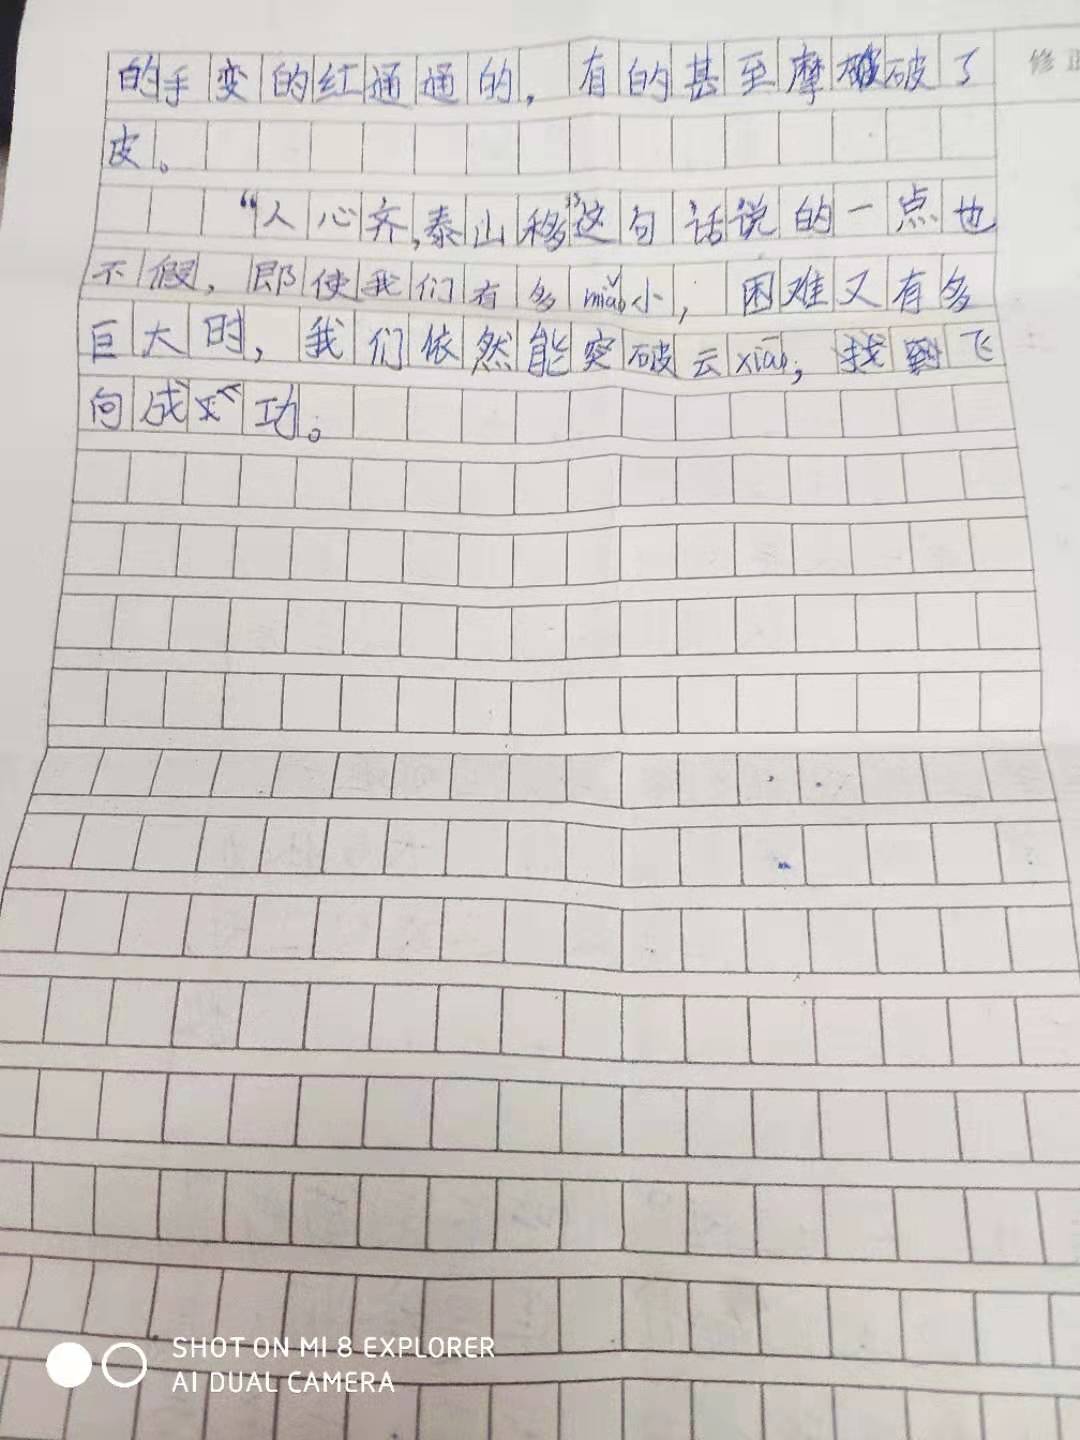 的手变的红通通的，有的甚至摩破了
修正
皮。
“人心齐,泰山移”这句话说的一点也
不假，即使我们有多miǎo小，困难又有多
巨大时，我们依然能突破云xiāo，找到飞
向成功。
SHOT ON MI 8 EXPLORER
AI DUAL CAMERA